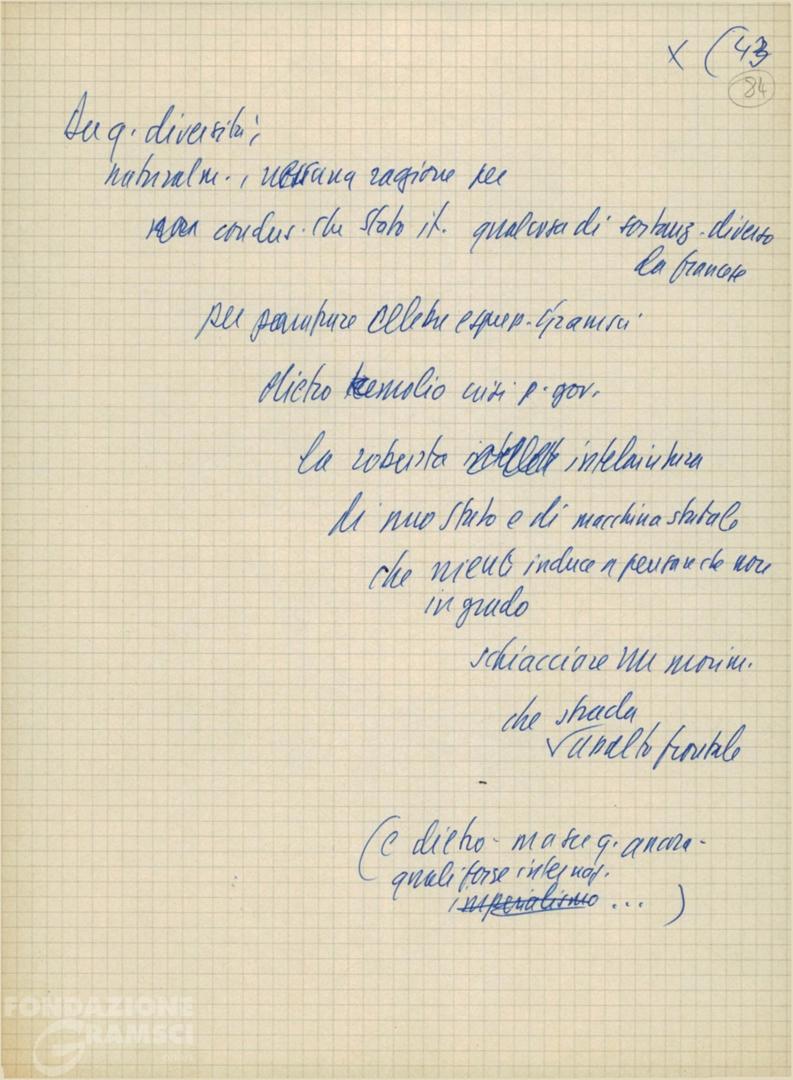 x (43
84
Su q. diversità;
naturalm., nessuna ragione per
non condus. che Stato it. qualcosa di sostanz. diverso
da francese
per celebre espress. Gramsci
dietro tremolio crisi p. gov.
la robusta intelaiatura
di nuo Stato e di macchina statale
che niente induce a pensare che non
in grado
schiacciare un movim.
che strada
assalto frontale
-
(E dietro - ma su q. ancora -
quali forze internaz.
imperialismo ... )
FONDAZIONE
GRAMSCI